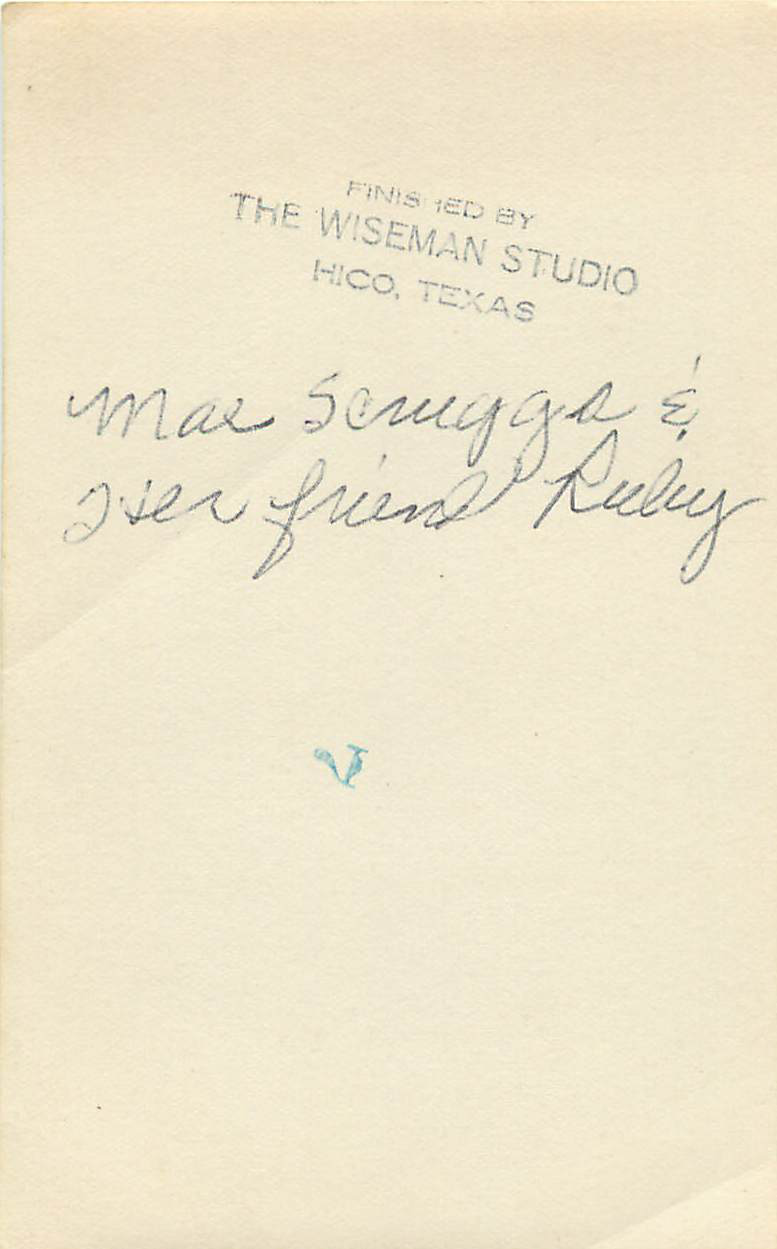 FINISHED BY
THE WISEMAN STUDIO
HICO, TEXAS
Mae Scruggs &
Her friend Ruby